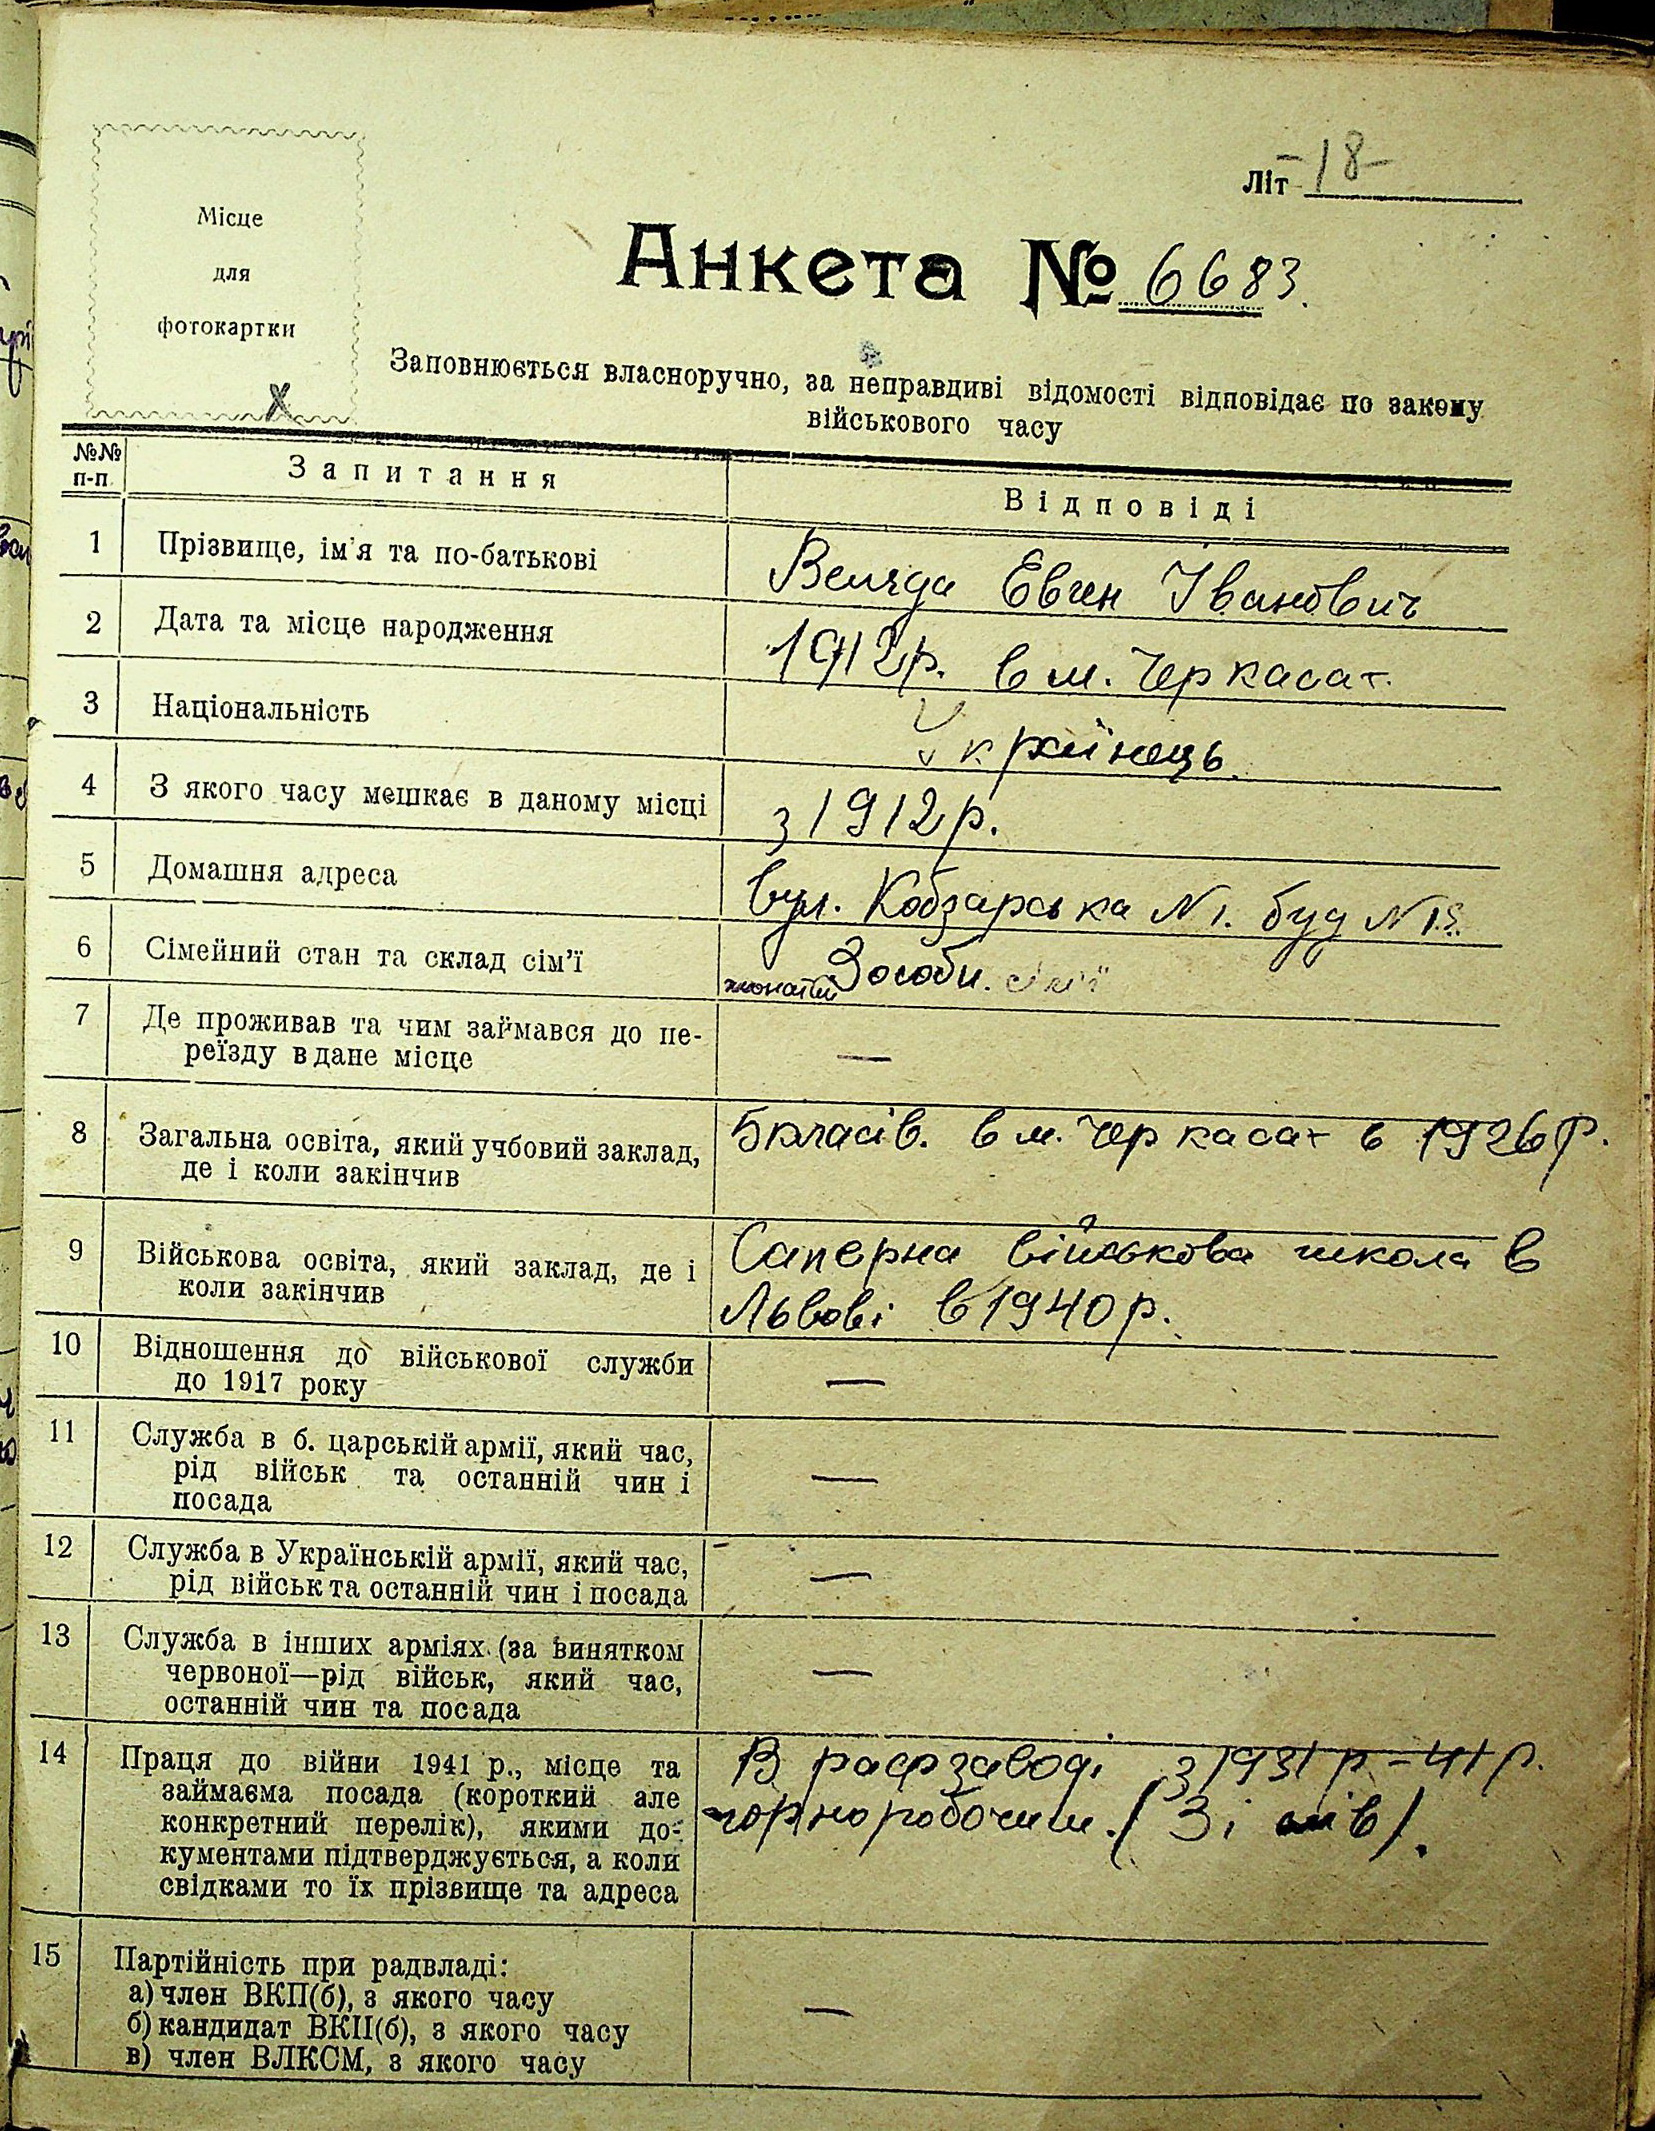 Літ -18-
Місце
для
фотокартки
х
Анкета № 6683.
Заповнюється власноручно, за неправдиві відомості відповідає по закону
військового часу
№№ п-п Запитання Відповіді
1 Прізвище, ім'я та по-батькові Евген Іванович
2 Дата та місце народження 1912р. в м. Черкасах.
3 Національність Українець.
4 З якого часу мешкає в даному місці з 1912 р.
5 Домашня адреса вул. Кобзарська N 1. буд N
6 Сімейний стан та склад сім'ї жонатий 3 особи. сімї
7 Де проживав та чим займався до пе-
реїзду в дане місце —
8 Загальна освіта, який учбовий заклад, 5 класів. в м. Черкасах в 1926 р.
де і коли закінчив
9 Військова освіта, який заклад, де і Саперна військова школа в
коли закінчив Львові в 1940 р.
10 Відношення до військової служби
до 1917 року —
11 Служба в б. царській армії, який час,
рід військ та останній чин і —
посада
12 Служба в Українській армії, який час,
рід військ та останній чин і посада —
13 Служба в інших арміях (за винятком
червоної—рід військ, який час, —
останній чин та посада
14 Праця до війни 1941 р., місце та В рафзаводі з 1931 р - 41 р.
займаєма посада (короткий але чорноробочим.
конкретний перелік), якими до-
кументами підтверджується, а коли
свідками то їх прізвище та адреса
15 Партійність при радвладі:
а) член ВКП(б), з якого часу
б) кандидат ВКП(б), з якого часу —
в) член ВЛКСМ, з якого часу